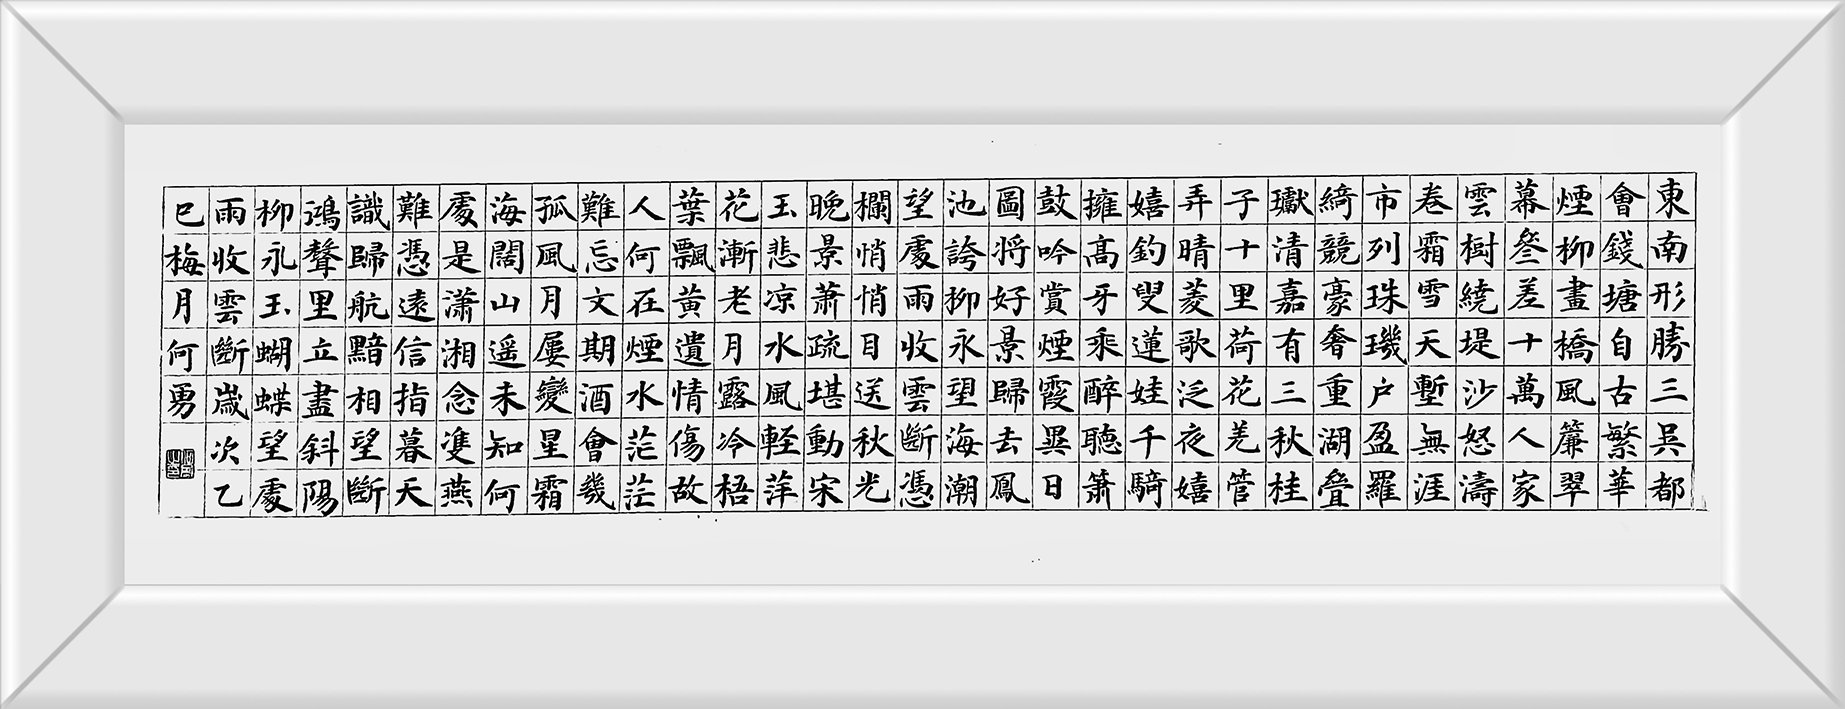 東南形勝三吳都
會錢塘自古繁華
煙柳畫橋風簾翠
幕叅差十萬人家
雲樹繞堤沙怒濤
卷霜雪天塹無涯
市列珠璣户盈羅
綺競豪奢重湖疊
巘清嘉有三秋桂
子十里荷花羌管
弄晴菱歌泛夜嬉
嬉釣叟蓮娃千騎
擁高牙乘醉聽簫
鼓吟賞煙霞異日
圖將好景歸去鳳
池誇柳永望海潮
望處雨收雲斷憑
欄悄悄目送秋光
晚景蕭疏堪動宋
玉悲凉水風輕萍
花漸老月露冷梧
葉飄黄遺情傷故
人何在煙水茫茫
難忘文期酒會幾
孤風月屢變星霜
海闊山遥未知何
處是瀟湘念雙燕
難憑遠信指暮天
識歸航黯相望斷
鴻聲里立盡斜陽
柳永玉蝴蝶望處
雨收雲斷歲次乙
巳梅月何勇